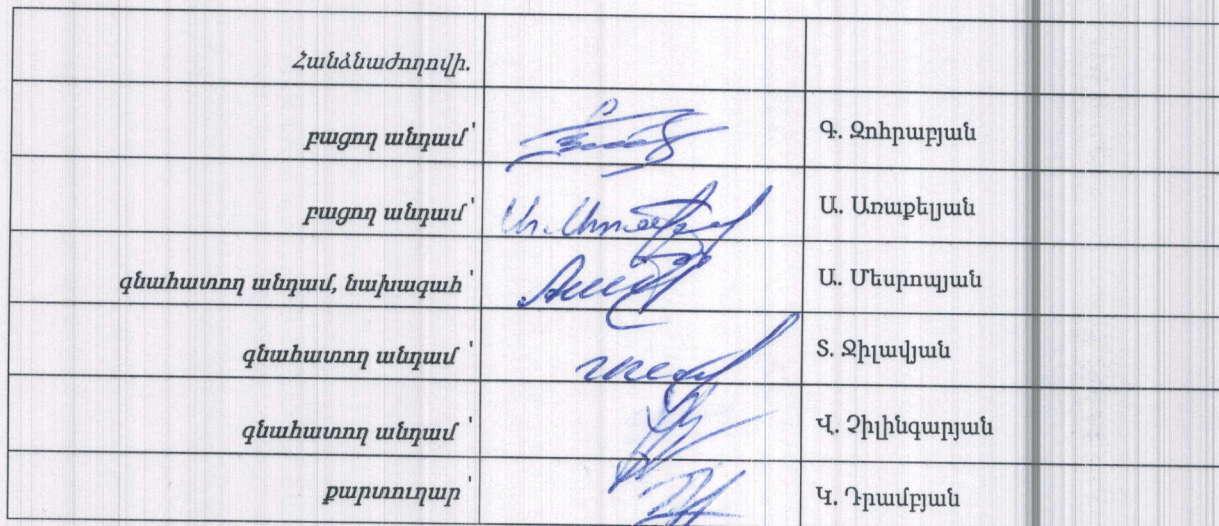 Հանձնաժողովի.
բացող անդամ՝ Գ. Զոհրաբյան
բացող անդամ՝ Ա. Առաքելյան
գնահատող անդամ, նախագահ՝ Ա. Մեսրոպյան
գնահատող անդամ՝ Տ. Ջիլավյան
գնահատող անդամ՝ Վ. Չիլինգարյան
քարտուղար՝ Կ. Դրամբյան